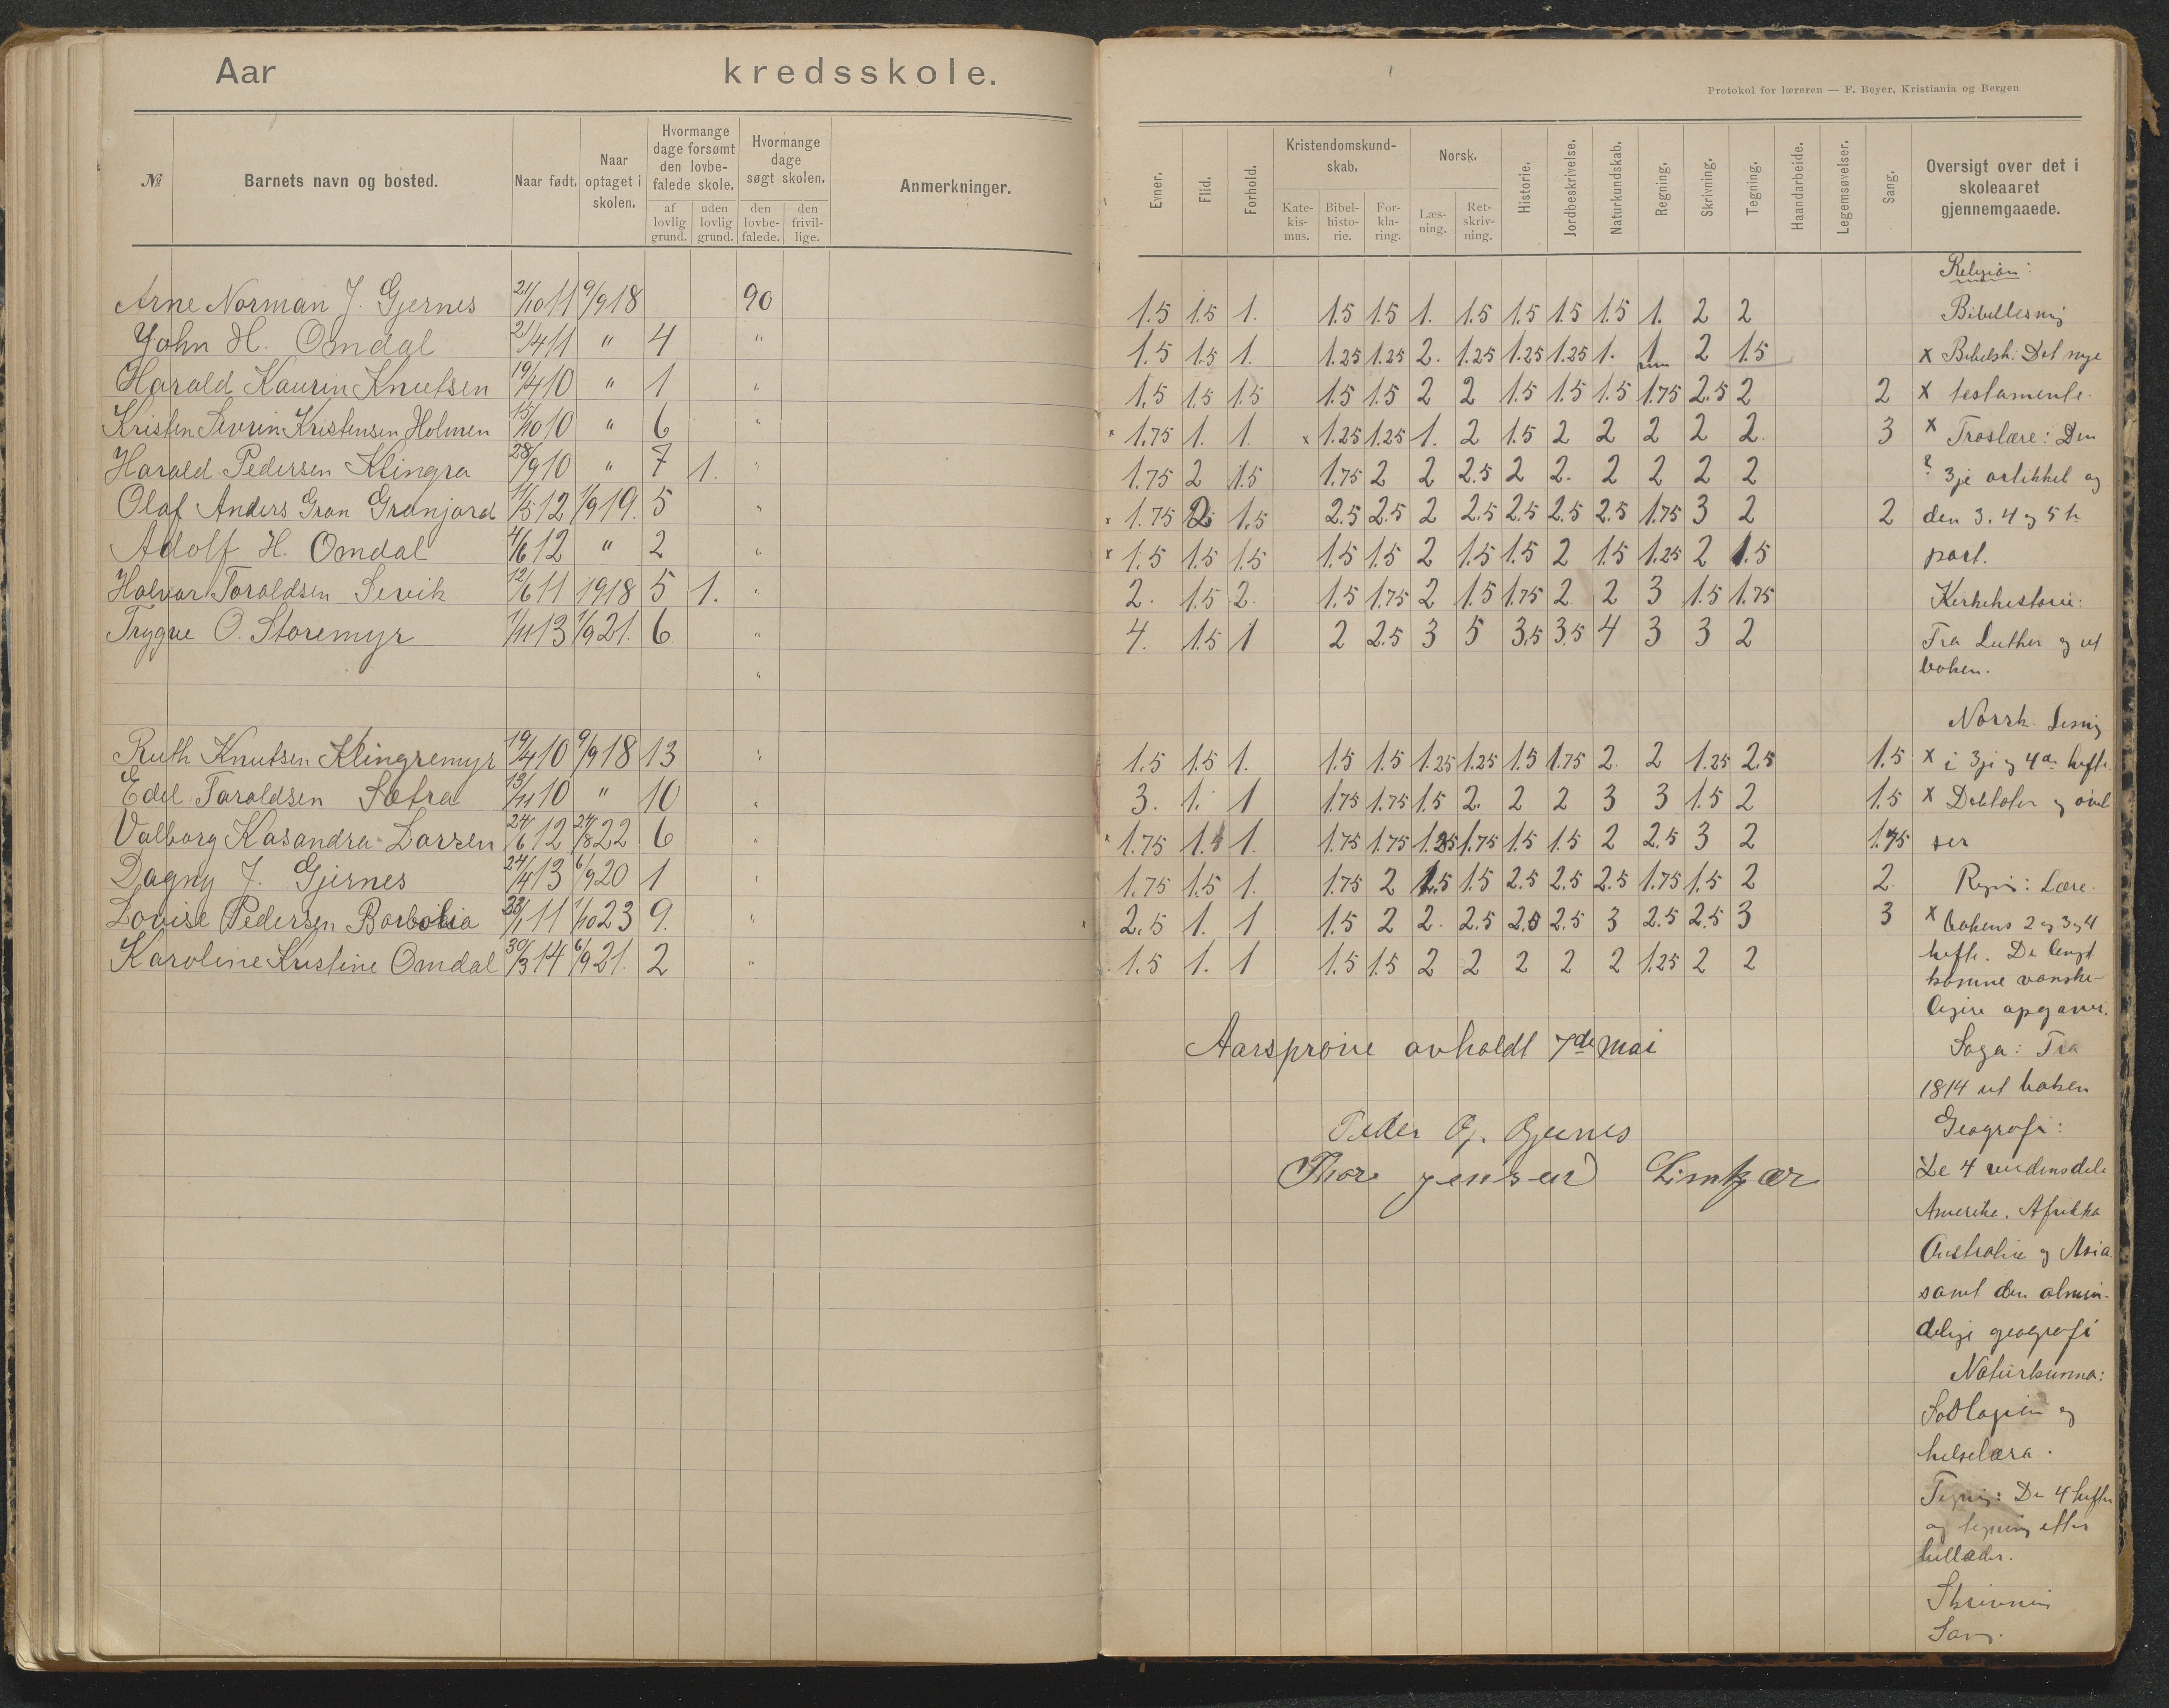 Aar kredsskole.
№ Barnets navn og bosted. Naar født. Naar optaget i skolen. Hvormange dage forsømt den lovbefalede skole. af lovlig grund. uden lovlig grund. Hvormange dage søgt skolen. den lovbefalede. den frivillige. Anmerkninger.
Arne Norman J. Gjernes 21/10 11 9/9 18 90
John H. Omdal 21/4 11 " 4 "
Harald Kaurin Knutsen 19/4 10 " 1 "
Kristen Sevrin Kristensen Holmen 15/10 10 " 6 "
Harald Pedersen Klingra 28/9 10 " 7 1. "
Olaf Anders Gran Granjord 11/5 12 1/9 19. 5 "
Adolf H. Omdal 4/6 12 " 2 "
Halvar Taraldsen Sevik 12/6 11 1918 5 1. "
Trygve O. Storemyr 1/11 13 1/9 21. 6 "
"
Ruth Knutsen Klingremyr 19/4 10 9/9 18 13 "
Edel Taraldsen Sætra 13/11 10 " 10 "
Valborg Kasandra Larsen 24/6 12 24/8 22 6 "
Dagny J. Gjernes 24/4 13 6/9 20 1 "
Lovise Pedersen 11 1/10 23 9. "
Karoline Kristine Omdal 30/3 14 6/9 21. 2 "
Protokol for læreren — F. Beyer, Kristiania og Bergen
Evner. Flid. Forhold. Kristendomskundskab. Katekismus. Bibelhistorie. Forklaring. Norsk. Læsning. Retskrivning. Historie. Jordbeskrivelse. Naturkundskab. Regning. Skrivning. Tegning. Haandarbeide. Legemsøvelser. Sang. Oversigt over det i skoleaaret gjennemgaaede.
Religion:
1.5 1.5 1. 1.5 1.5 1. 1.5 1.5 1.5 1.5 1. 2 2 Bibellesning
1.5 1.5 1. 1.25 1.25 2. 1.25 1.25 1.25 1. 1 2 1.5 x Bibelsh. Det nye
1.5 1.5 1.5 1.5 1.5 2 2 1.5 1.5 1.5 1.75 2.5 2 2 x testamente.
x 1.75 1. 1. x 1.25 1.25 1. 2 1.5 2 2 2 2 2. 3 x Troslære: Den
1.75 2 1.5 1.75 2 2 2.5 2 2. 2 2 2 2 ? 3je artikkel og
x 1.75 2 1.5 2.5 2.5 2 2.5 2.5 2.5 2.5 1.75 3 2 2 den 3. 4 og 5te
x 1.5 1.5 1.5 1.5 1.5 2 1.5 1.5 2 1.5 1.25 2 1.5 part.
2. 1.5 2. 1.5 1.75 2 1.5 1.75 2 2 3 1.5 1.75 Kirkehistorie:
4. 1.5 1 2 2.5 3 5 3.5 3.5 4 3 3 2 Fra Luther og ut
boken.
Norsk. Lesning
1.5 1.5 1. 1.5 1.5 1.25 1.25 1.5 1.75 2. 2 1.25 2.5 1.5 x i 3je og 4de hefte
3. 1. 1 1.75 1.75 1.5 2. 2 2 3 3 1.5 2 1.5 x Diktater og øvel
x 1.75 1. 1. 1.75 1.75 1.25 1.75 1.5 1.5 2 2.5 3 2 1.75 ser
1.75 1.5 1. 1.75 2 1.5 1.5 2.5 2.5 2.5 1.75 1.5 2 2. Regning: Lære
x 2.5 1. 1 1.5 2 2. 2.5 2.5 2.5 3 2.5 2.5 3 3 x bokens 2 og 3 og 4
1.5 1. 1 1.5 1.5 2 2 2 2 2 1.25 2 2 hefte. De lengst
komne vanske-
ligere opgaver.
Aarsprøve avholdt 7de mai Soga: Fra
1814 ut boken
Peder G. Gjernes Geografi:
Thore Jensen Limkjær De 4 verdensdele
Amerika. Afrikka
Australia og Asia
samt den almin-
delige geografi
Naturkunna:
og
helselæra.
Tegning: De 4 hefter
og tegning efter
Skrivning
Sang.